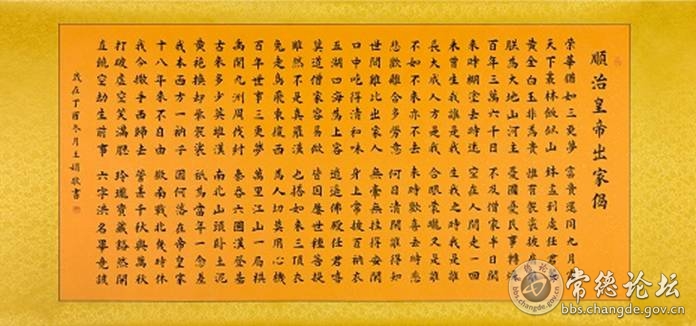 順治皇帝出家偈
榮華猶如三更夢 富貴還同九月
天下叢林飯似山 缽盂到處任君
黃金白玉非為貴 惟有袈裟披
朕為大地山河主 憂國憂民事轉
百年三萬六千日 不及僧家半日閒
來時糊塗去時迷 空在人間走一回
未曾生我誰是我 生我之時我是誰
長大成人方是我 合眼朦朧又是誰
不如不來亦不去 來時歡喜去時悲
悲歡離合多勞意 何日清閒誰得知
世間難比出家人 無牽無掛得安閒
口中吃得清和味 身上常披百衲衣
五湖四海為上客 逍遙佛殿任君嬉
莫道僧家容易做 皆因屢世種菩提
雖然不是真羅漢 也搭如來三頂衣
兔走烏飛東復西 為人切莫用心機
百年世事三更夢 萬里江山一局棋
禹開九洲周伐紂 秦吞六國漢登基
古來多少英雄漢 南北山頭臥土泥
黃袍換卻紫袈裟 祇為當年一念差
我本西方一衲子 因何落在帝皇家
十八年來不自由 徵南戰北幾時休
我今撒手西歸去 管甚千秋與萬秋
打破虛空笑滿腮 玲瓏寶藏豁然開
直饒空劫生前事 六字洪名畢竟該
歲在丁酉冬月王媚敬書
常德论坛
bbs.changde.gov.cn